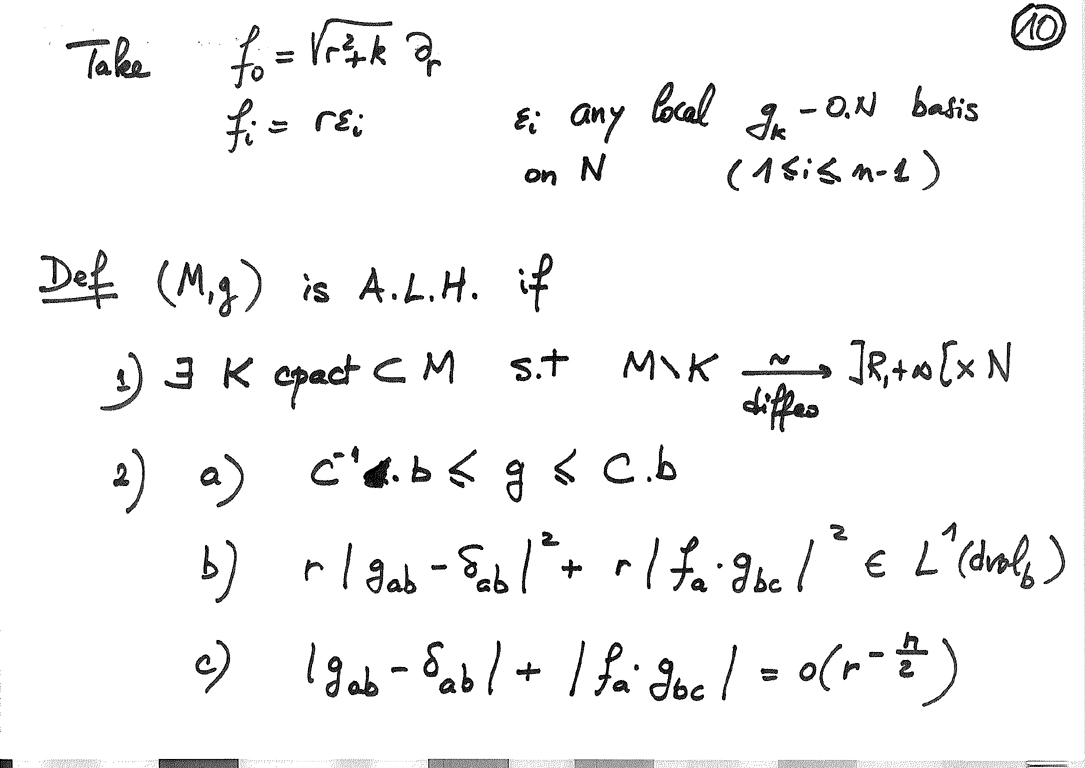 10
Take f₀ = √(r²+k) ∂ᵣ
fᵢ = rεᵢ εᵢ any local gₖ - O.N basis
on N (1 ≤ i ≤ n-1)
Def (M,g) is A.L.H. if
1) ∃ K cpact ⊂ M s.t M\K ~→ diffeo ]R,+∞[ x N
2) a) C⁻¹.b ≤ g ≤ C.b
b) r|g_ab - δ_ab|² + r|f_a·g_bc|² ∈ L¹(dvol_b)
c) |g_ab - δ_ab| + |f_a·g_bc| = o(r^{-n/2})